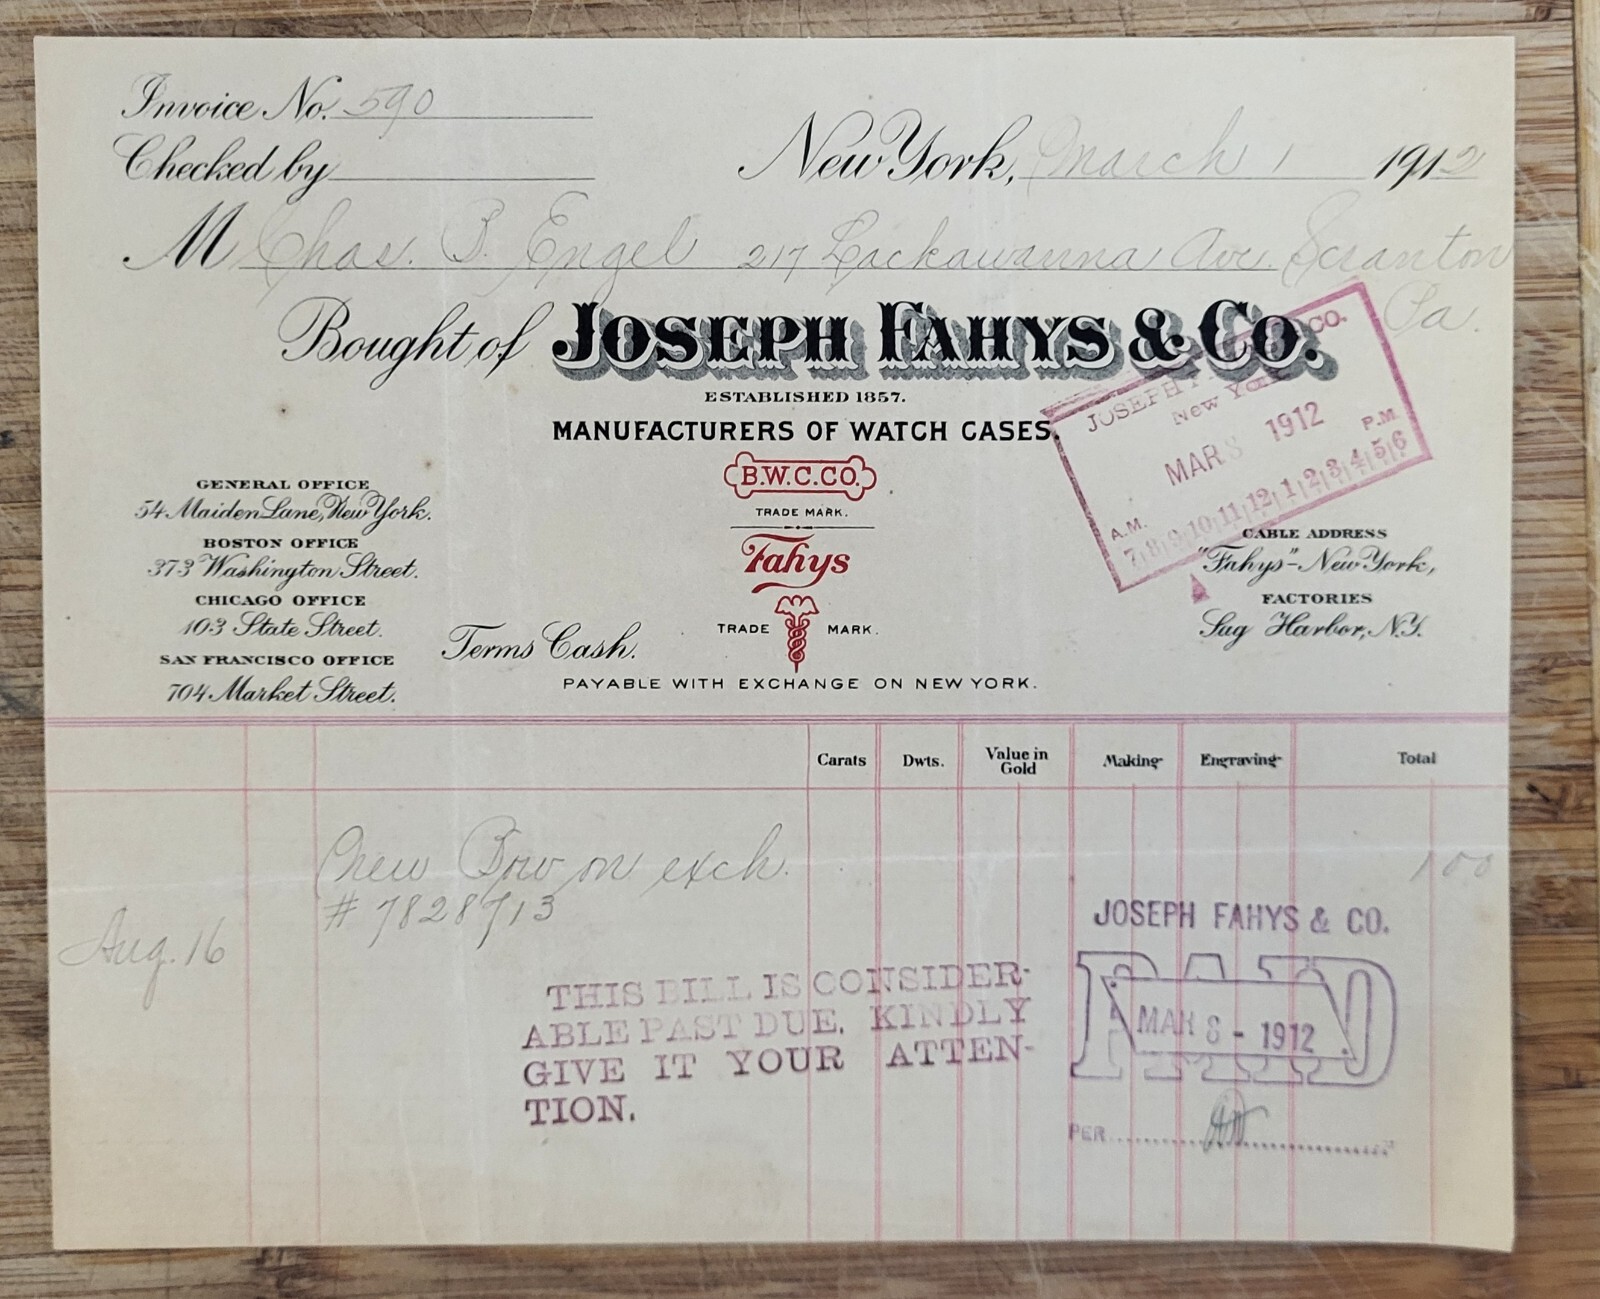 Invoice No. 590
Checked by
New York, March 1 1912
M Chas. B. Engel 217 Lackawanna Ave. Scranton
Pa.
Bought of JOSEPH FAHYS & CO.
ESTABLISHED 1857.
MANUFACTURERS OF WATCH CASES.
B.W.C.CO.
TRADE MARK.
Fahys
TRADE MARK.
GENERAL OFFICE
54 Maiden Lane, New York.
BOSTON OFFICE
373 Washington Street.
CHICAGO OFFICE
103 State Street.
SAN FRANCISCO OFFICE
704 Market Street.
Terms Cash.
PAYABLE WITH EXCHANGE ON NEW YORK.
JOSEPH CO.
New York
MAR 8 1912
A.M. P.M.
7 8 9 10 11 12 1 2 3 4 5 6
CABLE ADDRESS
"Fahys"-New York,
FACTORIES
Sag Harbor, N.Y.
Carats Dwts. Value in Gold Making Engraving Total
new Bow on exch. 1 00
# 7828713
Aug. 16
THIS BILL IS CONSIDER-
ABLE PAST DUE. KINDLY
GIVE IT YOUR ATTEN-
TION.
JOSEPH FAHYS & CO.
PAID
MAR 8 - 1912
PER